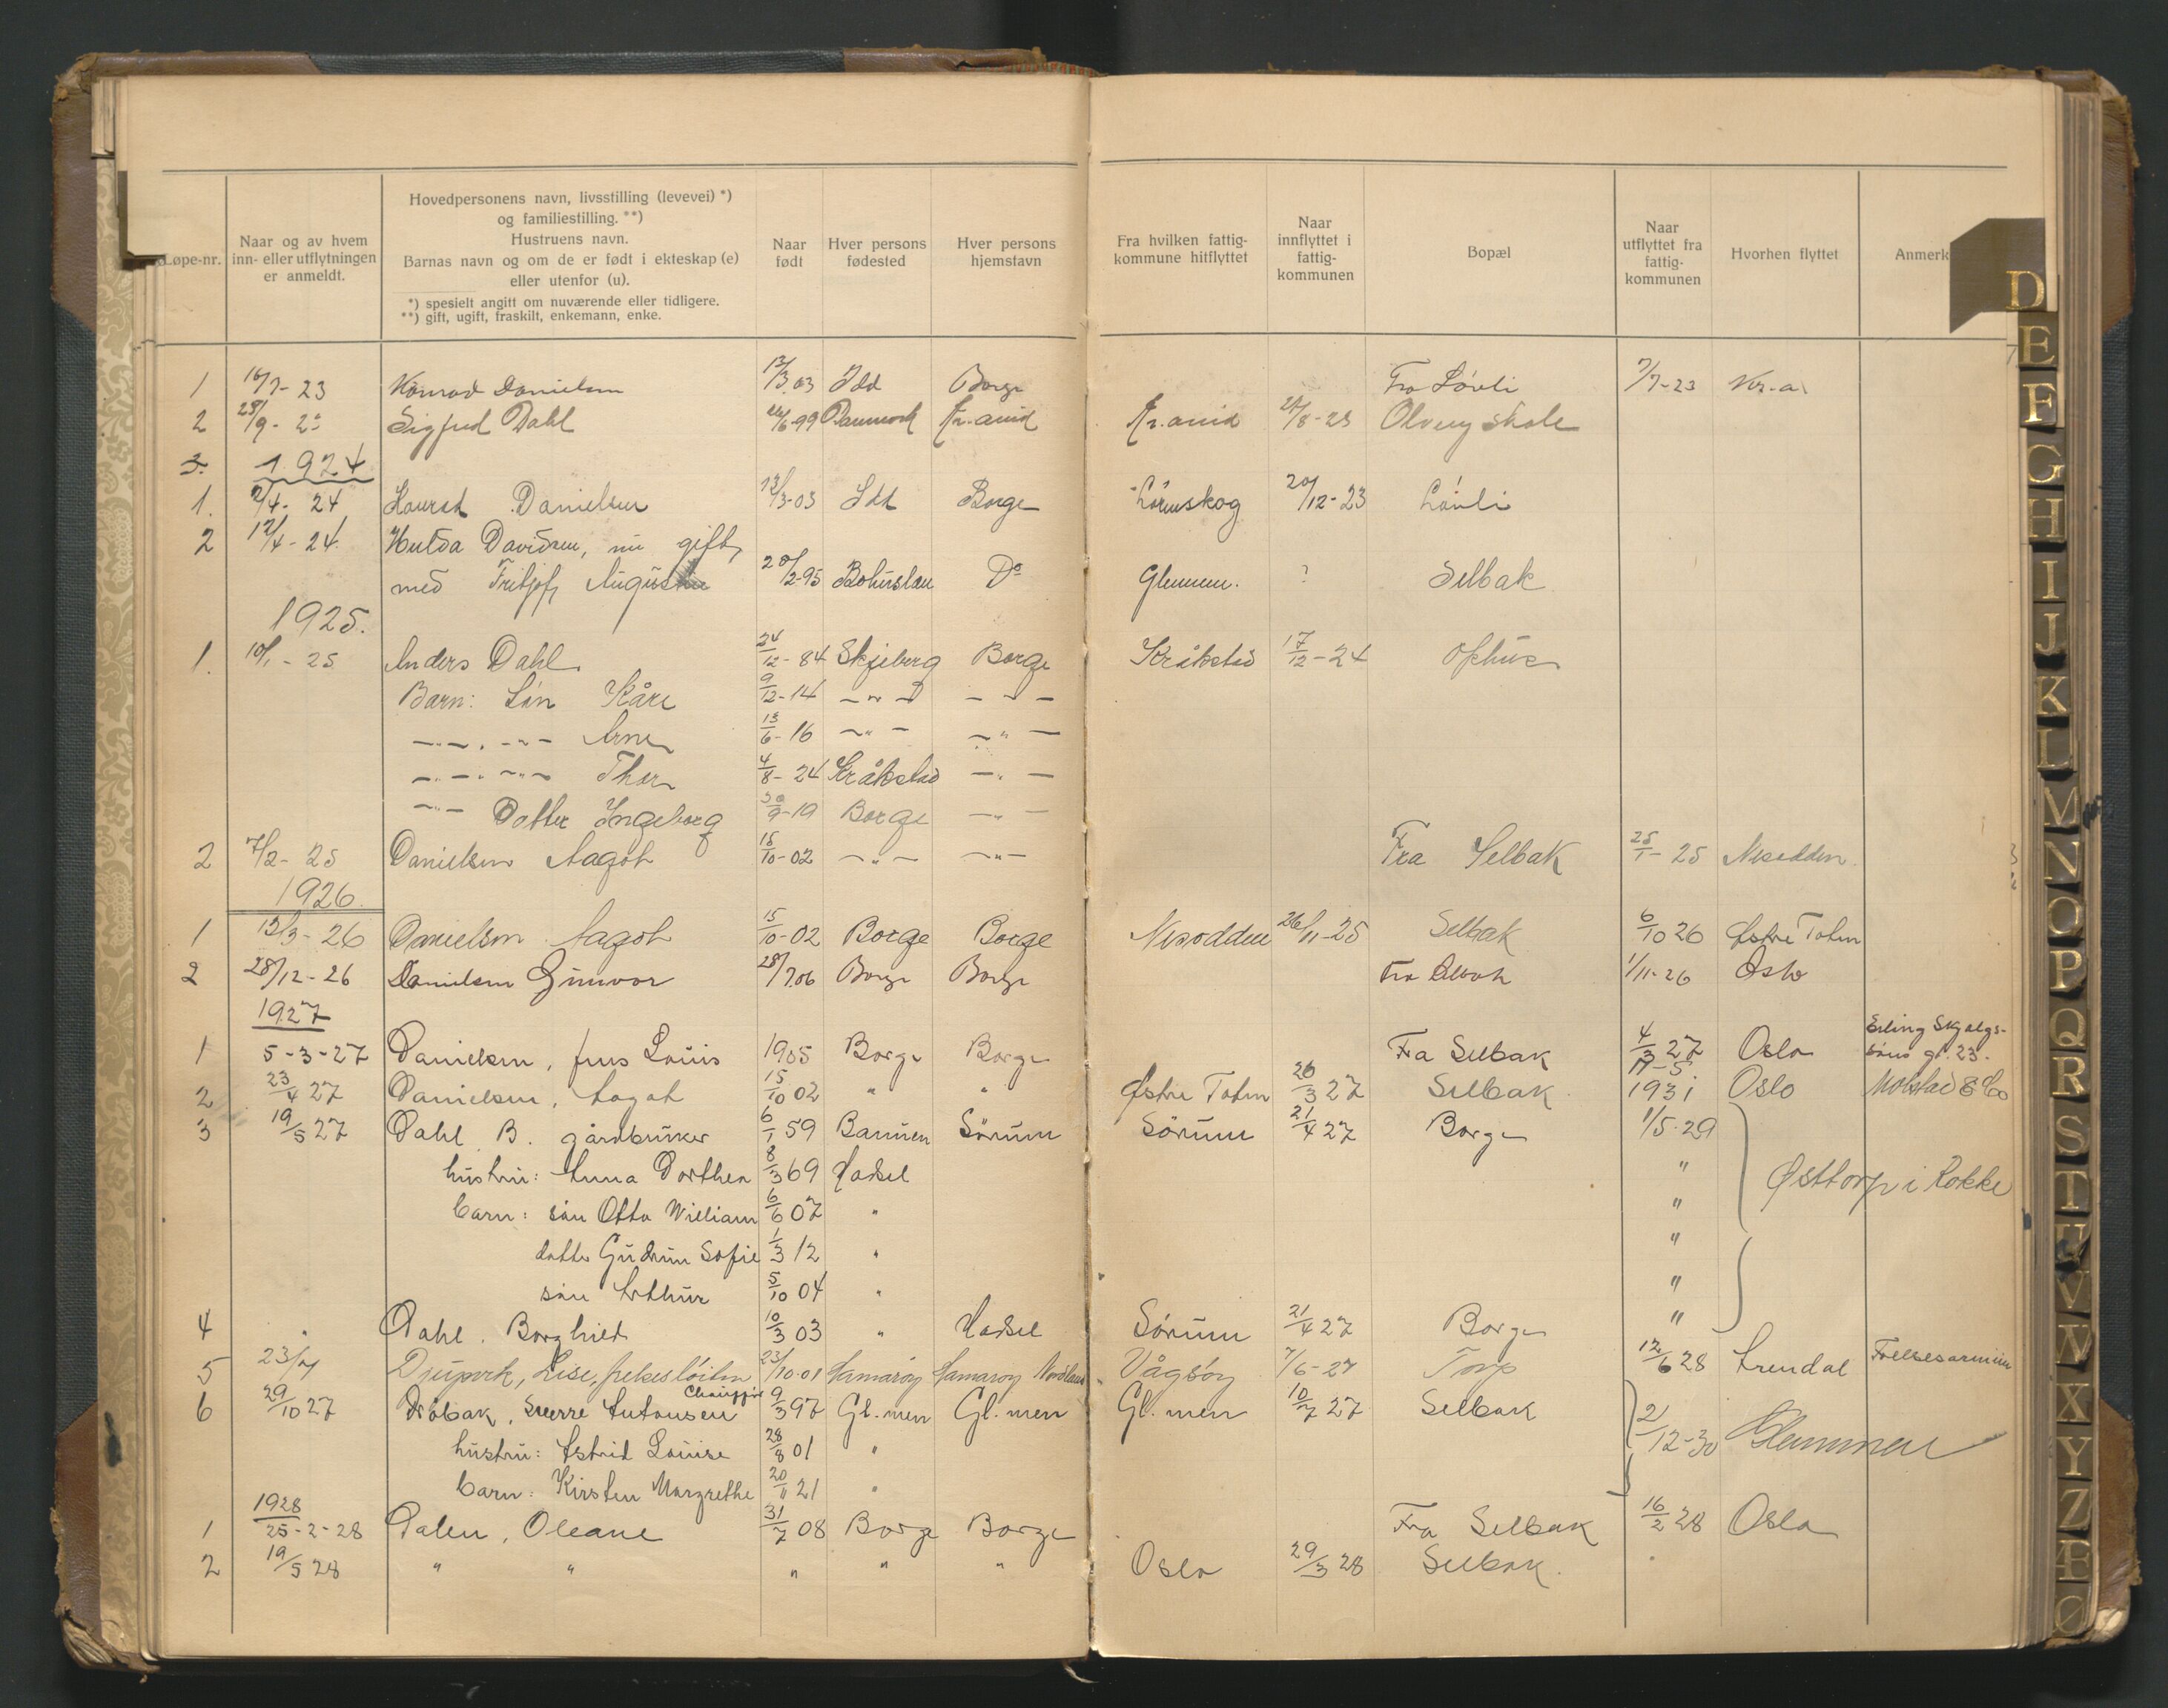 Løpe-nr.
Naar og av hvem
inn- eller utflytningen
er anmeldt.
Hovedpersonens navn, livsstilling (levevei) *)
og familiestilling. **)
Hustruens navn.
Barnas navn og om de er født i ekteskap (e)
eller utenfor (u).
*) spesielt angitt om nuværende eller tidligere.
**) gift, ugift, fraskilt, enkemann, enke.
Naar
født
Hver persons
fødested
Hver persons
hjemstavn
Fra hvilken fattig-
kommune hitflyttet
Naar
innflyttet i
fattig-
kommunen
Bopæl
Naar
utflyttet fra
fattig-
kommunen
Hvorhen flyttet
Anmerk
1 16/7-23 Konrad Danielsen 13/3.03 Idd Borge Fra Løvli 7/7-23 Kr.a
2 25/9-23 Sigfred Dahl /6-99 Danmark Kr.anid Kr.anid /8-23 Olveng skole
3. 1924
1. 2/4-24 Danielsen 13/3-03 Idd Borge Lørenskog 20/12-23 Løvli
2 12/4-24. Hulda Davidsen, nu gift
med Fritjof Augustin 20/2-95 Bohuslen Do Glemmen. ? Selbak
1925.
1. 10/1-25 Anders Dahl 24/12-84 Skjeberg Borge Kråkstad 17/12-24 Ophus
Barn: Søn Kåre 9/12-14 -"- -"-
-"- -"- Arne 13/6-16 -"- -"-
-"- -"- Thor 4/8-24 Kråkstad -"-
-"- Datter Ingeborg 30/9-19 Borge -"-
2 7/2-25 Danielsen Aagot 15/10-02 -"- -"- Fra Selbak 25/1-25 Nesodden
1926.
1 13/3-26 Danielsen Aagot 15/10-02 Borge Borge Nesodden 26/11-25 Selbak 6/10 26 Østre Toten
2 28/12-26 Danielsen Gunvor 28/7.06 Borge Borge Fra Selbak 1/11-26 Oslo
1927
1 5-3-27 Danielsen, frus Louis 1905 Borge Borge Fra Selbak 4/3 27 Oslo Erling Skjalgs-
søns gt. 23.
2 23/4 27 Danielsen, Aagot 15/10 02 " " Østre Toten 26/3 27 Selbak 17-5 1931 Oslo Molstad & Co
3 19/5 27 Dahl B. gårdbruker 6/1 59 Sørum Sørum 21/4 27 Borge 1/5-29
hustru: Anna Dorthea 8/3 69 Hadsel " Østtorp i Rokke
barn: søn Otto William 6/6 07 " "
datter Gudrun Sofie 1/3 12 " "
søn Arthur 5/10 04 " "
4 " Dahl. Borghild 10/3 03 " Hadsel Sørum 21/4 27 Borge "
5 23/7 Djupvik, Lise, frelsesløitn 23/10-01 Hamarøy Hamarøy Nordland Vågsøy 7/6-27 Torp 12/6 28 Arendal Frelsesarmeen
6 29/10 27 Drøbak, Sverre Antonsen Chauffør 9/3 97 Gl.men Gl.men Gl.men 10/7 27 Selbak 2/12-30 Glemmen
hustru: Astrid Louise 28/8 01 "
barn: Kirsten Margrethe 20/11 21 "
1928
1 25-2-28 Dalen, Oleane 31/7 08 Borge Borge Fra Selbak 16/2 28 Oslo
2 19/5 28 " " " " " Oslo 29/3 28 Selbak.
D
E
F
G
H
I
J
K
L
M
N
O
P
Q
R
S
T
U
V
W
X
Y
Z
Æ
Ø